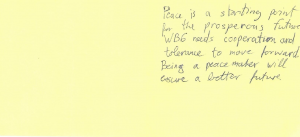 Peace is a starting point
for the prosperous future
WBG needs cooperation and
tolerance to move forward
Being a peace maker will
ensure a better future.